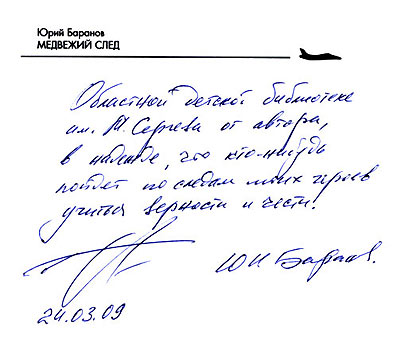 Юрий Баранов
МЕДВЕЖИЙ СЛЕД
Областной детской библиотеке
им. М. Сергеева от автора,
в надежде, что кто-нибудь
пойдет по следам моих героев
учиться верности и чести.
Ю Н Баранов.
24.03.09